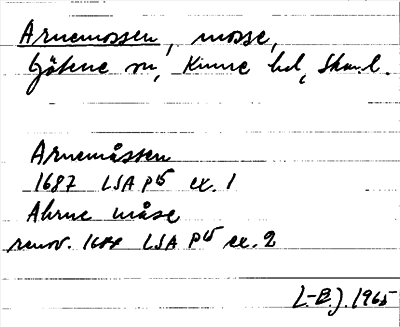 Arnemossen, mosse,
Götene sn, Kinne hd, Skar.l.
Arnemåssen
1687 LSA P15 ex. 1
Ahrne måse
renov. 1688 LSA P15 ex. 2
L-B.J 1965